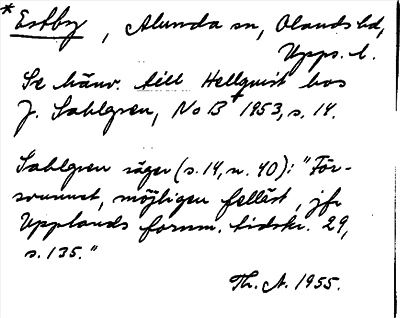 *Estby, Alunda sn, Olands hd,
Upps. l.
Se hänv. till Hellquist hos
J. Sahlgren, No B 1953, s. 14.
Sahlgren säger (s. 14, n. 40): "För-
svunnet, möjligen felläst, jfr
Upplands fornm. tidskr. 29,
s. 135."
Th. A. 1955.